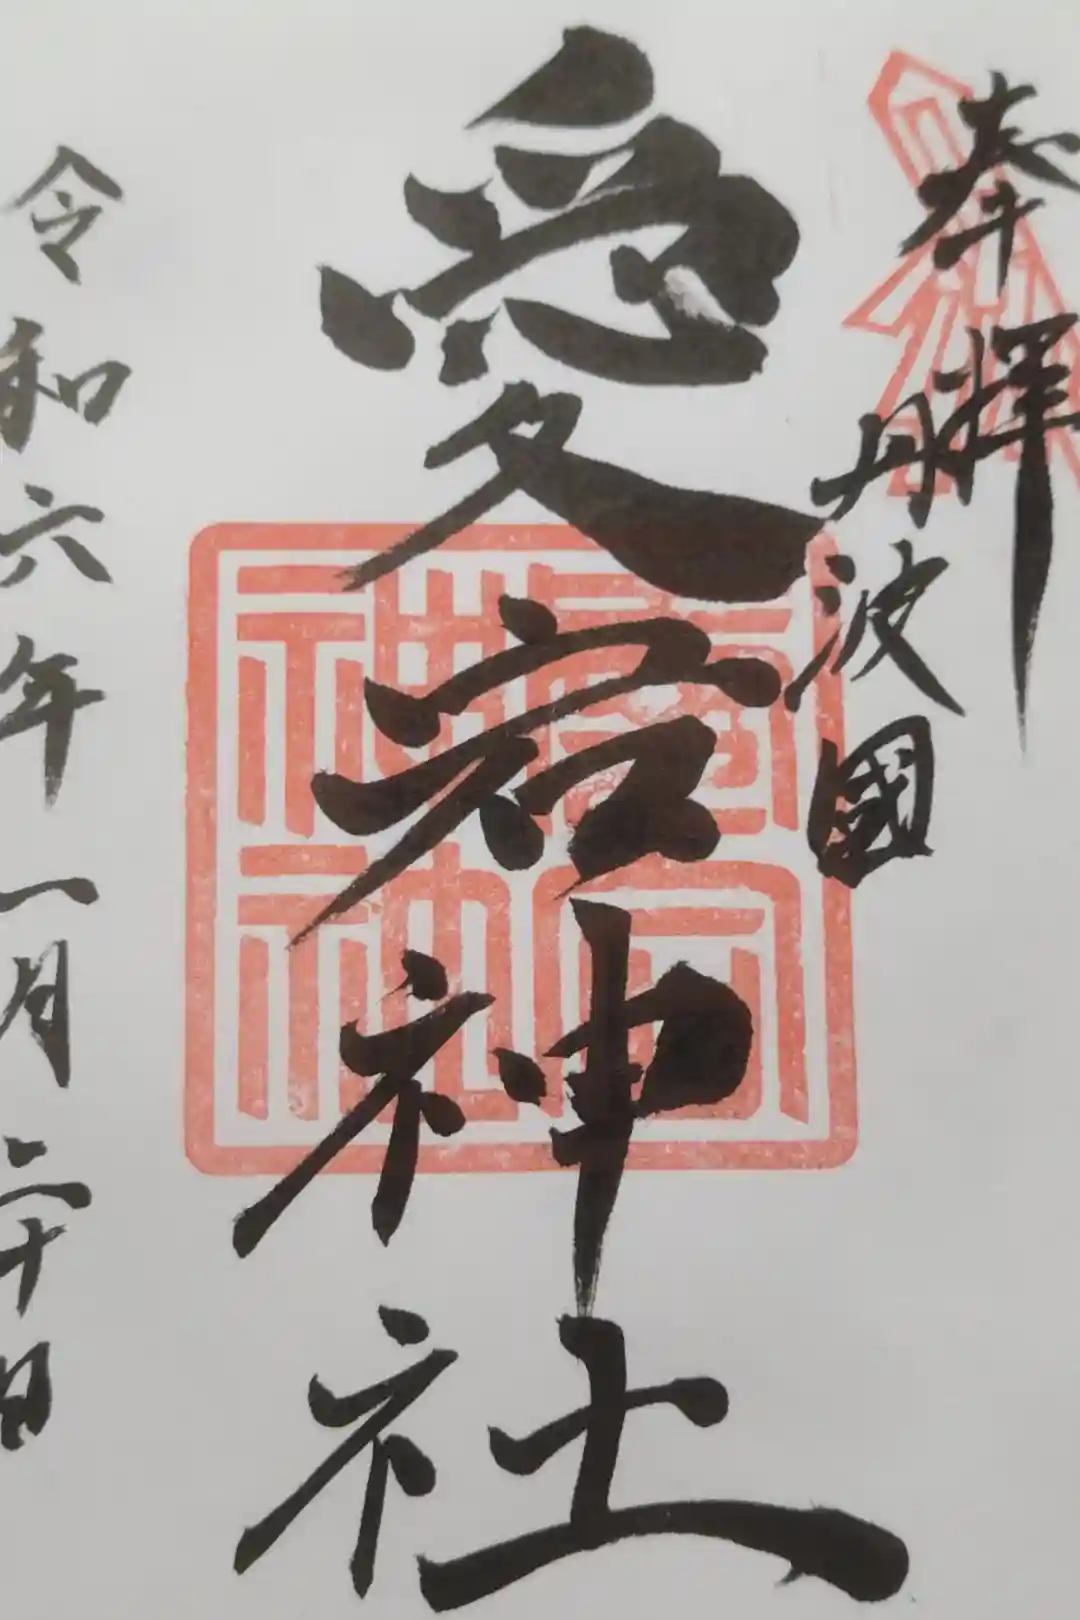 奉拝
丹波國
愛宕神社
令和六年一月二十日